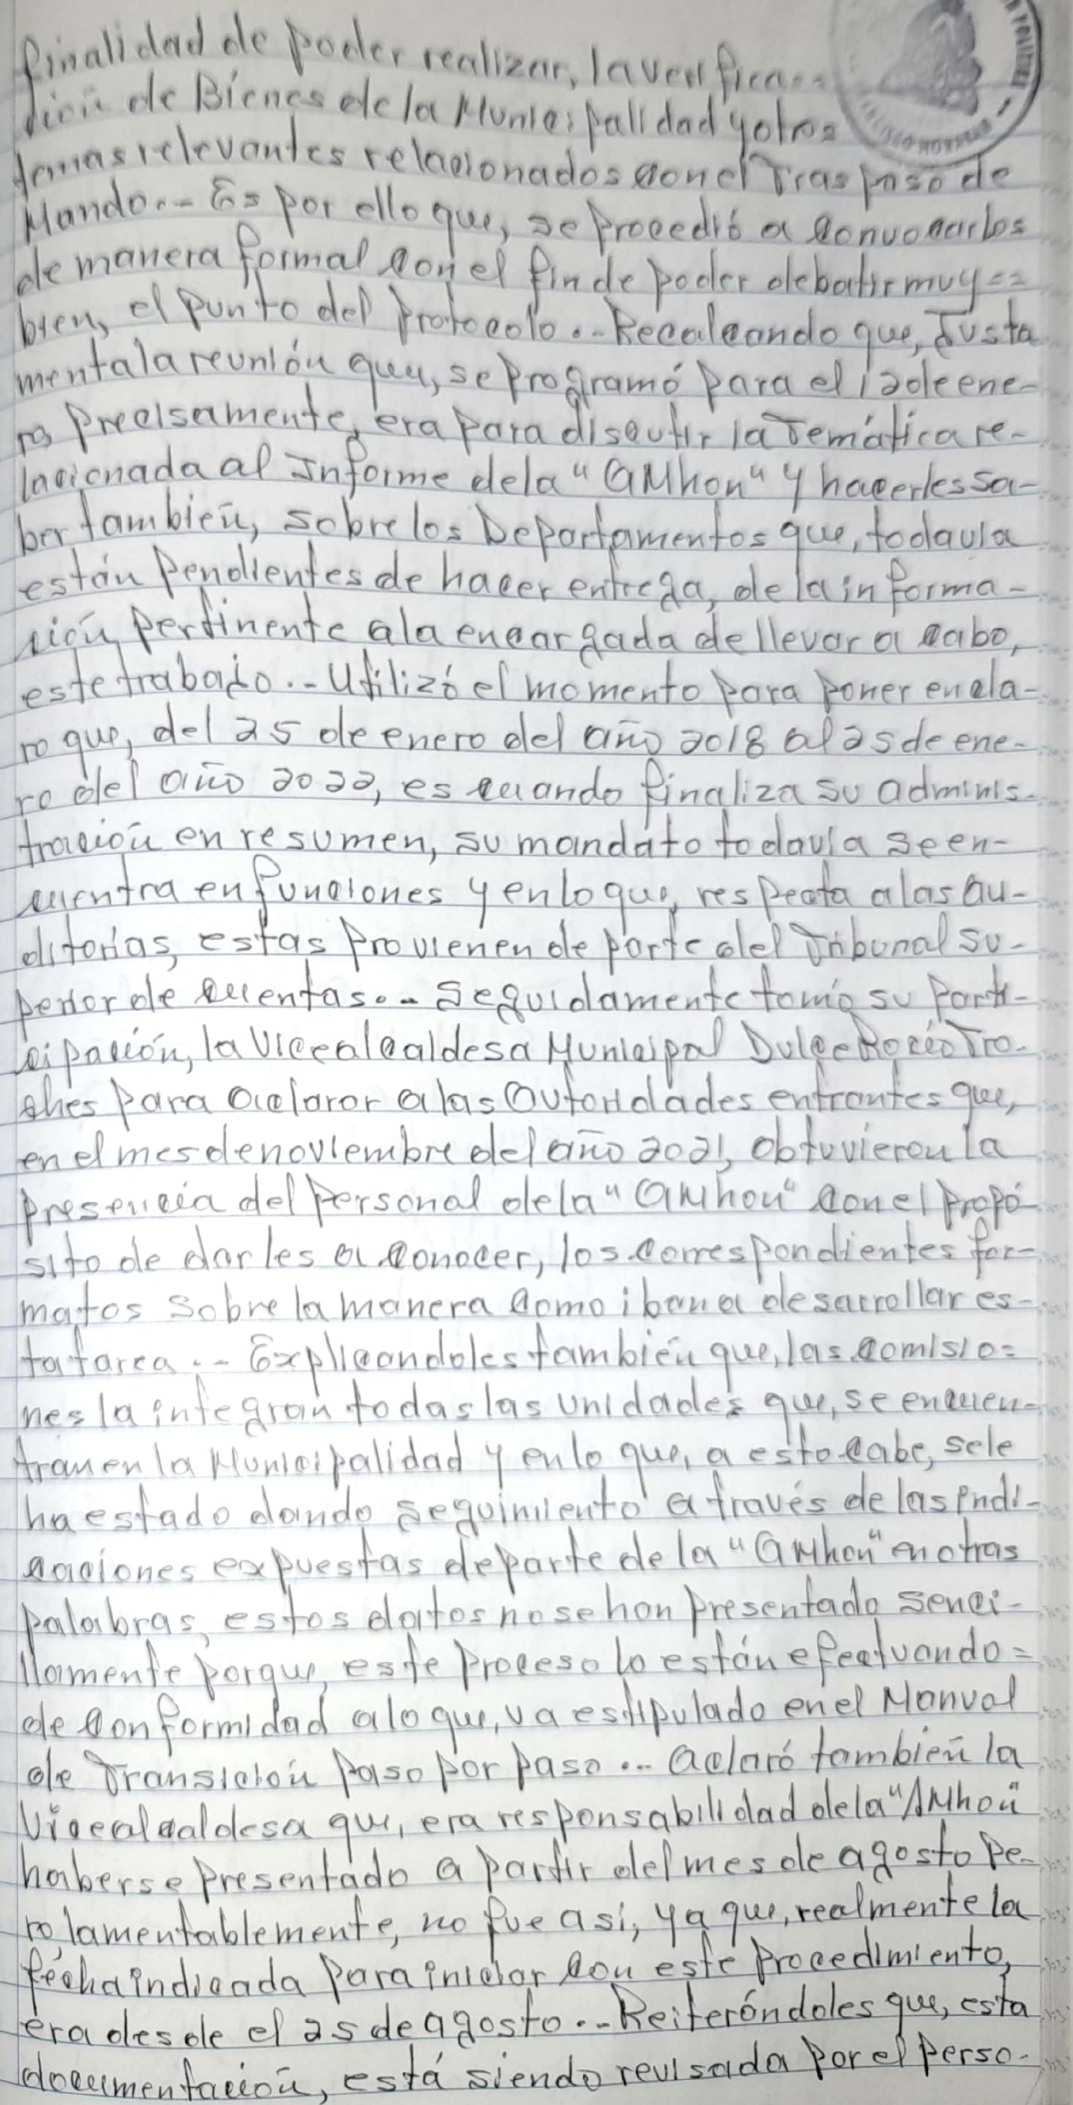 finalidad de poder realizar, la verifica--
ción de Bienes de la Municipalidad y otros
temas relevantes relacionados con el Traspaso de
Mando.- Es por ello que, se procedió a convocarlos
de manera formal con el fin de poder debatir muy==
bien, el punto del protocolo..- Recalcando que, Justa
mente la reunión que, se programó para el 12 de ene-
ro precisamente, era para discutir la Temática re-
lacionada al Informe de la "AMhon" y hacerles sa-
ber también, sobre los Departamentos que, todavía
están pendientes de hacer entrega, de la informa-
ción pertinente a la encargada de llevar a cabo,
este trabajo..- Utilizó el momento para poner en cla-
ro que, del 25 de enero del año 2018 al 25 de ene-
ro del año 2022, es cuando finaliza su adminis-
tración en resumen, su mandato todavía se en-
cuentra en funciones y en lo que, respecta a las Au-
ditorías, estas provienen de parte del Tribunal Su-
perior de cuentas..- Seguidamente tomó su parti-
cipación, la Vicealcaldesa Municipal Dulce Rocío Tro-
ches para aclarar a las Autoridades entrantes que,
en el mes de noviembre del año 2021, obtuvieron la
presencia del personal de la "AMhon" con el propó
sito de darles a conocer, los correspondientes for-
matos sobre la manera como iban a desarrollar es-
ta tarea..- Explicandoles también que, las comisio=
nes la integran todas las unidades que, se encuen-
tran en la Municipalidad y en lo que, a esto cabe, se le
ha estado dando seguimiento a través de las indi-
caciones expuestas de parte de la "AMhon" en otras
palabras, estos datos no se han presentado senci-
llamente porque, este proceso lo están efectuando=
de conformidad a lo que, va estipulado en el Manual
de Transición paso por paso..- Aclaró también la
Vicealcaldesa que, era responsabilidad de la "AMhon"
haberse presentado a partir del mes de agosto pe-
ro, lamentablemente, no fue así, ya que, realmente la
fecha indicada para iniciar con este procedimiento,
era desde el 25 de agosto..- Reiterándoles que, esta
documentación, está siendo revisada por el perso-